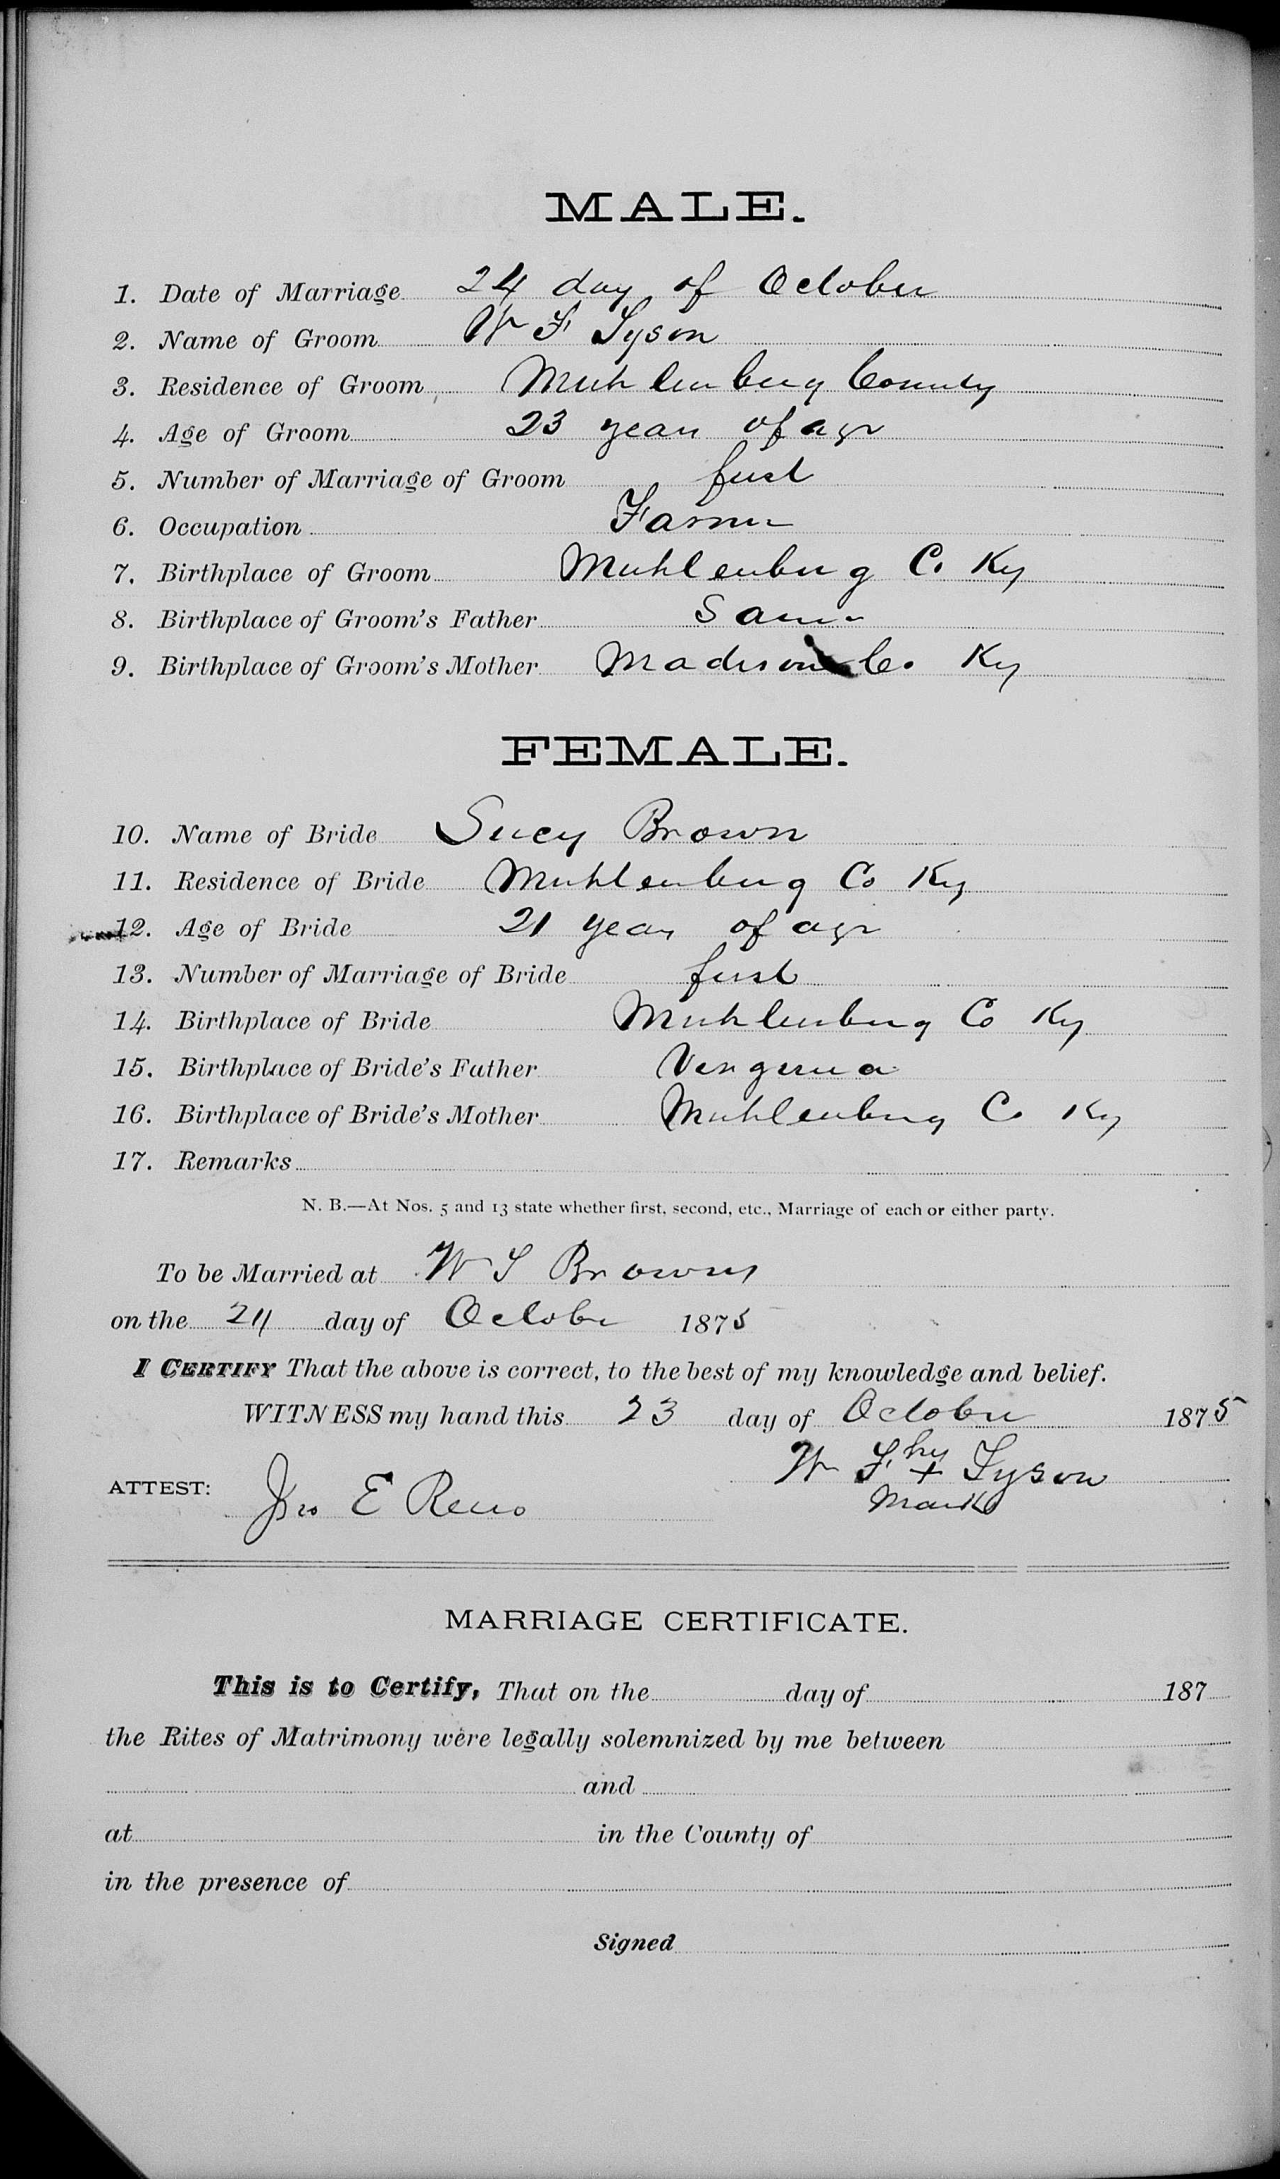 MALE.
1. Date of Marriage 24 day of October
2. Name of Groom W F Tyson
3. Residence of Groom Muhlenburg County
4. Age of Groom 23 years of age
5. Number of Marriage of Groom first
6. Occupation Farmer
7. Birthplace of Groom Muhlenburg C. Ky
8. Birthplace of Groom's Father Same
9. Birthplace of Groom's Mother Madison Co. Ky
FEMALE.
10. Name of Bride Sucy Brown
11. Residence of Bride Muhlenburg Co Ky
12. Age of Bride 21 years of age
13. Number of Marriage of Bride first
14. Birthplace of Bride Muhlenburg Co Ky
15. Birthplace of Bride's Father Verginia
16. Birthplace of Bride's Mother Muhlenburg Co Ky
17. Remarks
N. B.—At Nos. 5 and 13 state whether first, second, etc., Marriage of each or either party.
To be Married at W S Browns
on the 24 day of October 1875
I CERTIFY That the above is correct, to the best of my knowledge and belief.
WITNESS my hand this 23 day of October 1875
W F his + Tyson
mark
ATTEST: Jno E Reno
MARRIAGE CERTIFICATE.
This is to Certify, That on the day of 187
the Rites of Matrimony were legally solemnized by me between
and
at in the County of
in the presence of
Signed